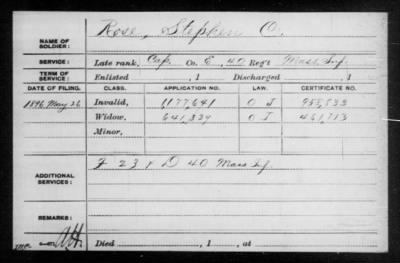 NAME OF SOLDIER: Rose, Stephen O.
SERVICE: Late rank, Cap. Co. E, 40 Reg't Mass. Inf.
TERM OF SERVICE: Enlisted , 1 Discharged , 1
DATE OF FILING. CLASS. APPLICATION NO. LAW. CERTIFICATE NO.
1896 May 26 Invalid, 1177,641 O J
Widow, O I
Minor,
ADDITIONAL SERVICES: F 23 & D 40 Mass Inf.
REMARKS:
Died , 1 , at